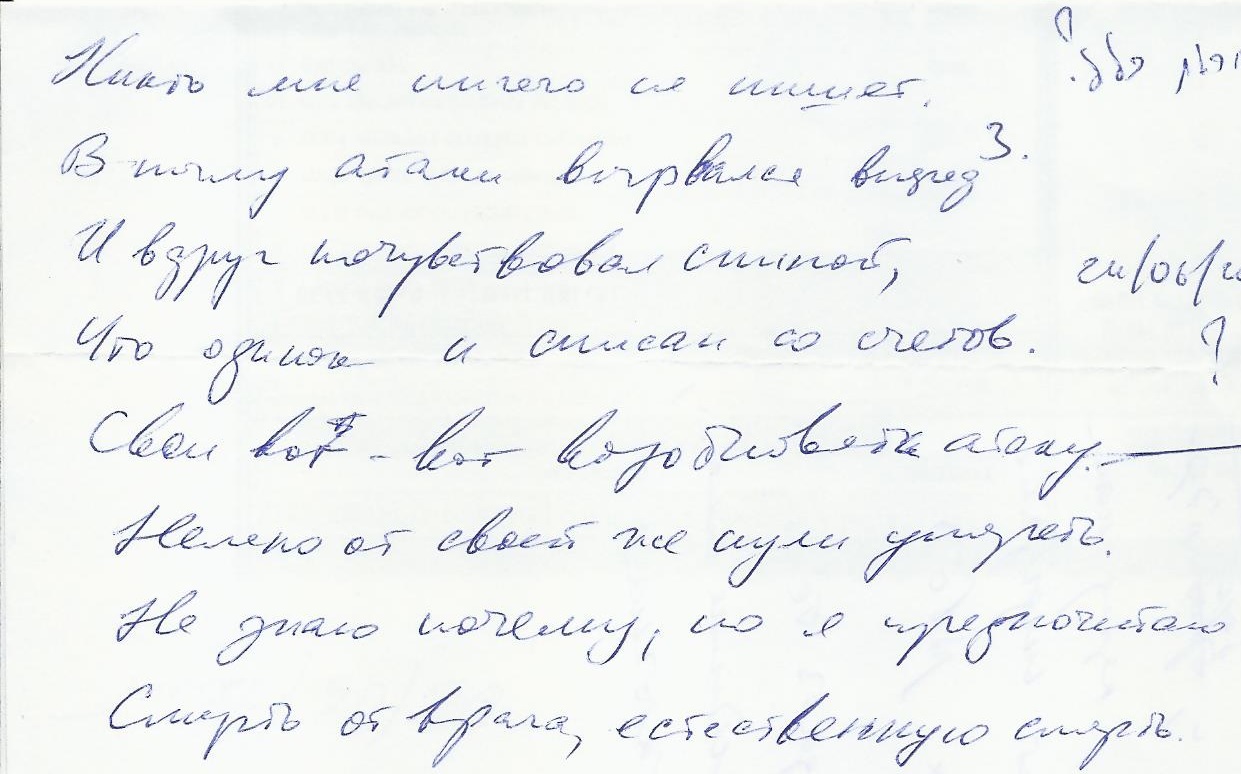 Никто мне ничего не пишет.
В пылу атаки вырвался вперед
И вдруг почувствовал спиной,
Что одинок и списан со счетов.
Свои вот-вот возобновят атаку.
Нелепо от своей же пули умереть.
Не знаю почему, но я предпочитаю
Смерть от врача, естественную смерть.